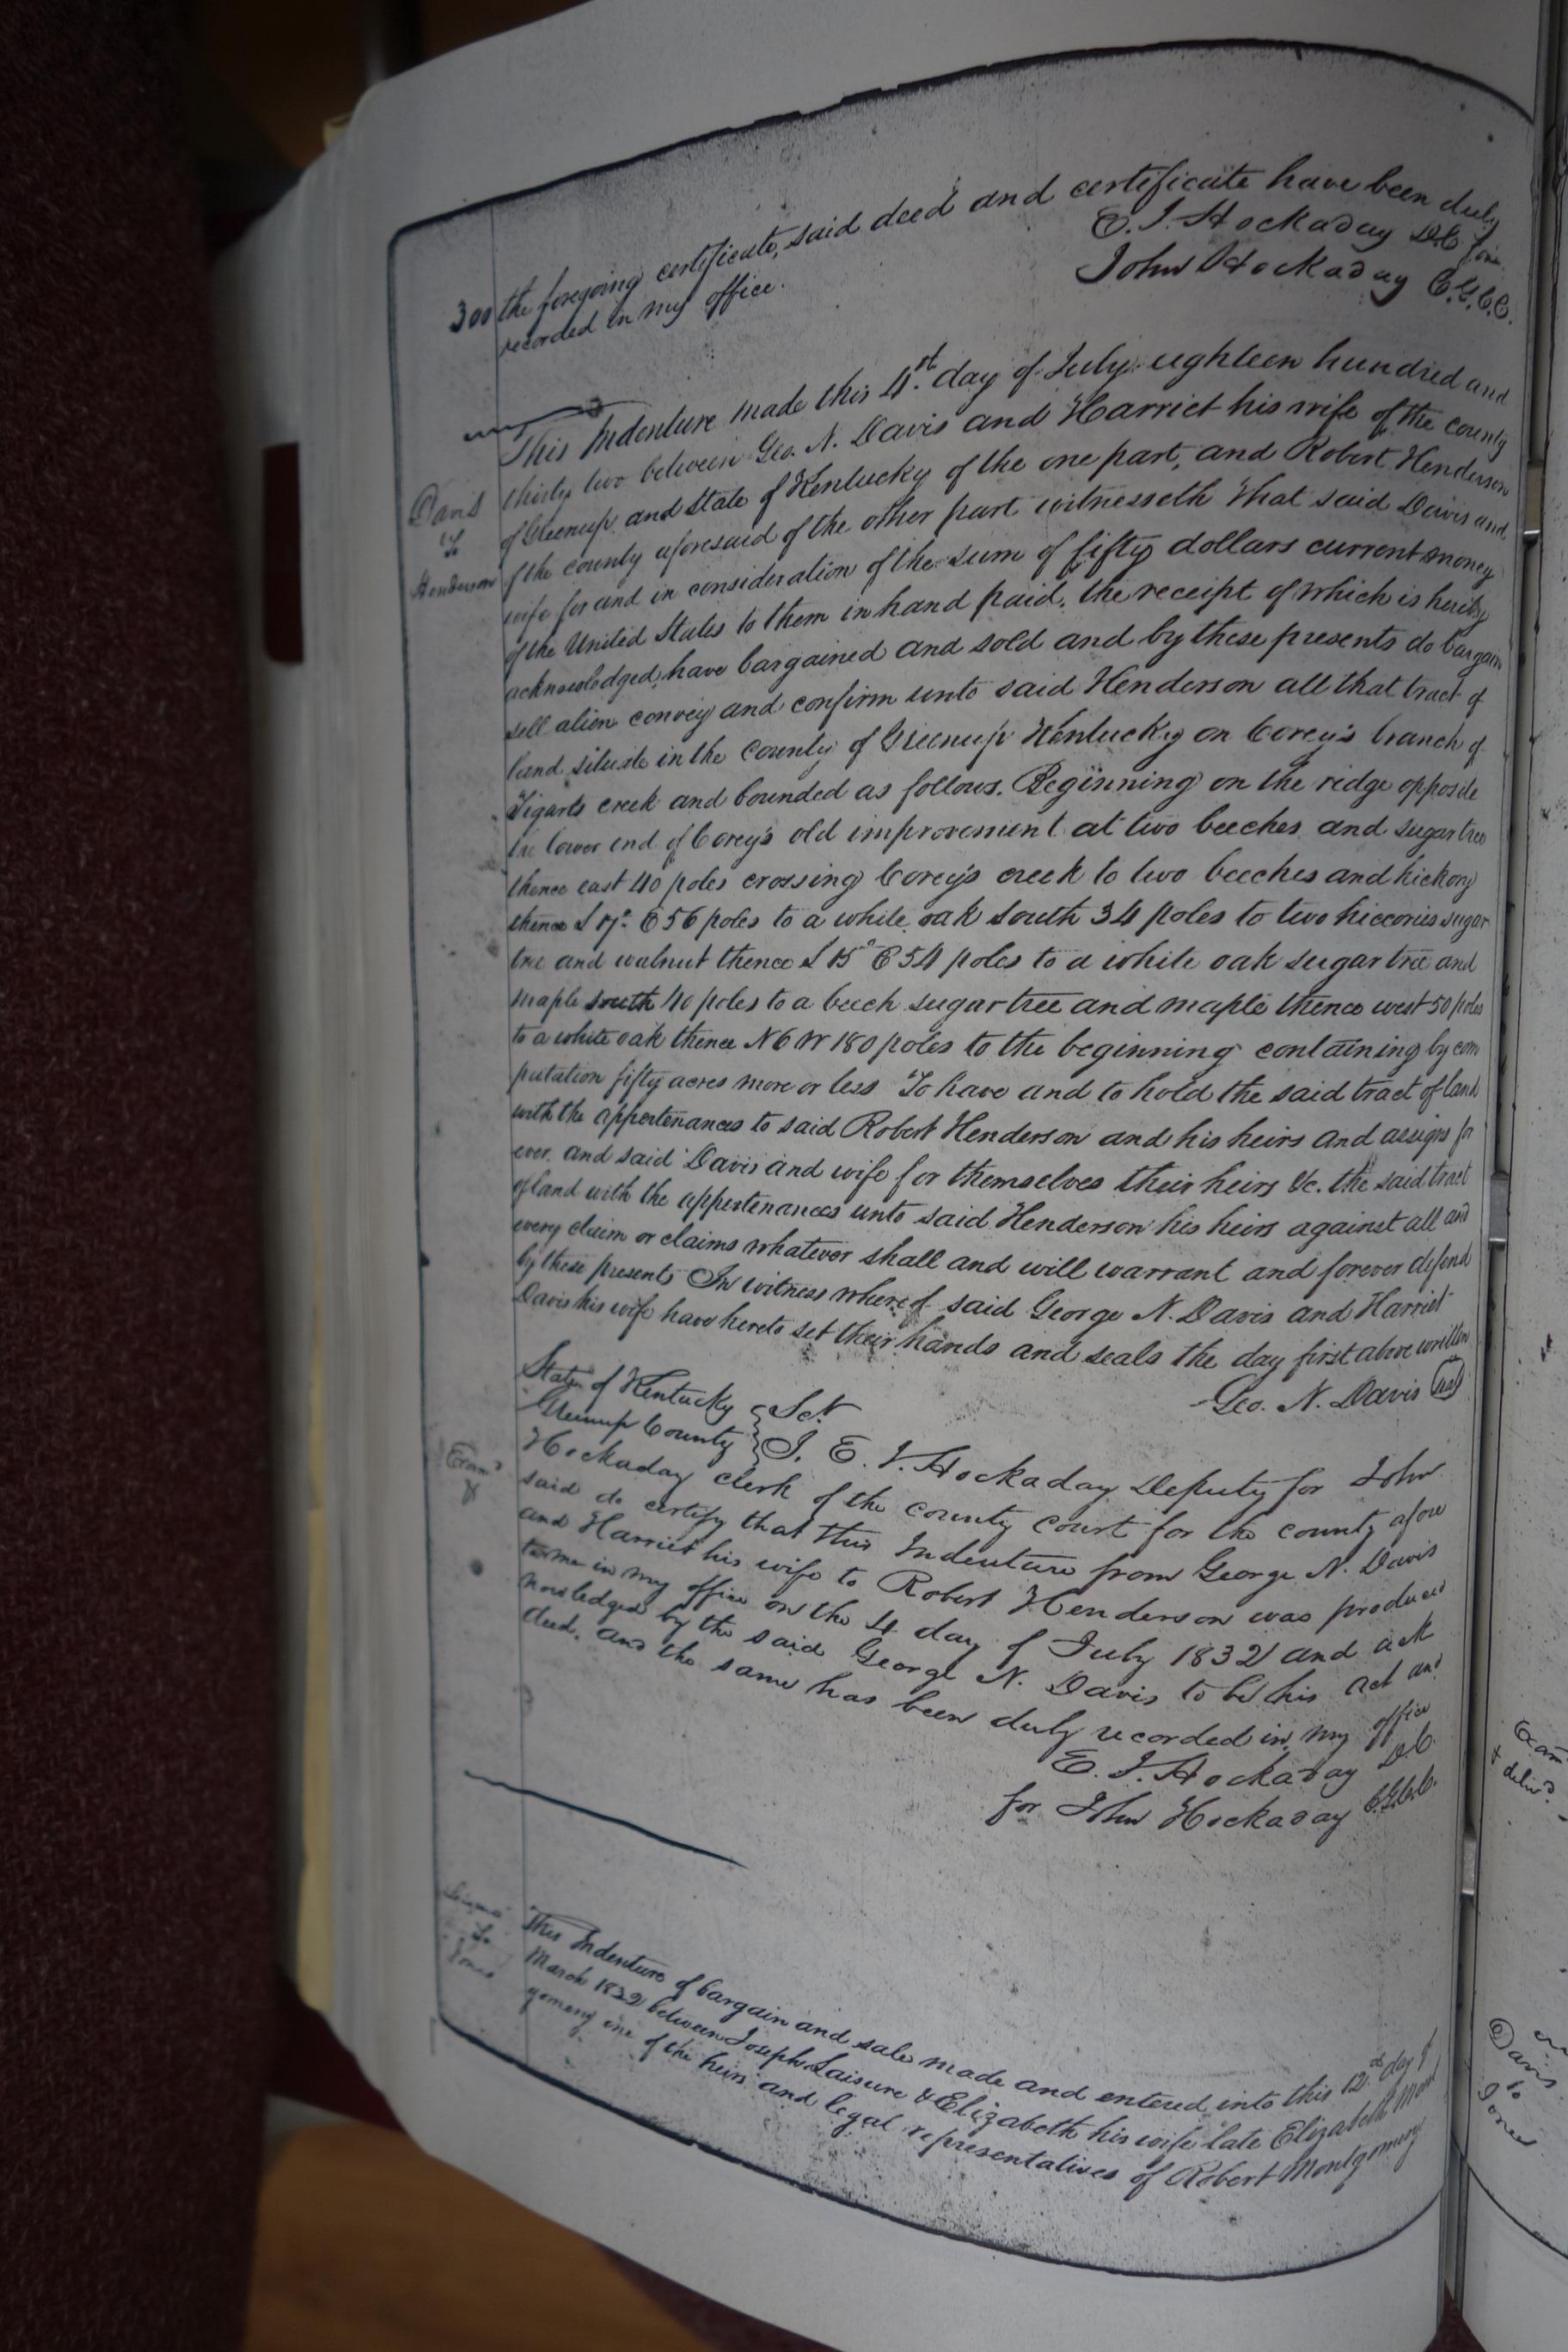 300 the foregoing certificate, said deed and certificate have been duly
recorded in my office.
E. J. Hockaday DC for
John Hockaday C.G.C.C.
This Indenture made this 4st. day of July eighteen hundred and
Davis
to
Henderson
thirty two between Geo. N. Davis and Harriet his wife of the county
of Greenup and state of Kentucky of the one part, and Robert Henderson
of the county aforesaid of the other part witnesseth That said Davis and
wife for and in consideration of the sum of fifty dollars current money
of the United States to them in hand paid, the receipt of which is hereby
acknowledged, have bargained and sold and by these presents do bargain
sell alien convey and confirm unto said Henderson all that tract of
land situate in the county of Greenup Kentucky on Corey's branch of
Tigarts creek and bounded as follows. Beginning on the ridge opposite
the lower end of Corey's old improvement at two beeches and sugar tree
thence east 40 poles crossing Corey's creek to two beeches and hickory
thence S 17° E 56 poles to a white oak south 34 poles to two hiccories sugar
tree and walnut thence S 15° E 54 poles to a white oak sugar tree and
maple south 40 poles to a beech sugar tree and maple thence west 50 poles
to a white oak thence N 6 W 180 poles to the beginning containing by com
putation fifty acres more or less To have and to hold the said tract of land
with the appertenances to said Robert Henderson and his heirs and assigns for
ever. and said Davis and wife for themselves their heirs &c. the said tract
of land with the appertenances unto said Henderson his heirs against all and
every claim or claims whatever shall and will warrant and forever defend
by these presents In witness whereof said George N. Davis and Harriet
Davis his wife have hereto set their hands and seals the day first above written
Geo. N. Davis seal
State of Kentucky
Greenup County } Sct.
I. E. J. Hockaday Deputy for John
Exam'd
Hockaday clerk of the county court for the county afore
said do certify that this Indenture from George N. Davis
and Harriet his wife to Robert Henderson was produced
to me in my office on the 4 day of July 1832 and ack
nowledged by the said George N. Davis to be his act and
deed. and the same has been duly recorded in my office
E. J. Hockaday D.C.
for John Hockaday C.G.C.C.
to
Jones
This Indenture of bargain and sale made and entered into this 12th day of
March 1832 between Joseph Laisure & Elizabeth his wife late Elizabeth Mont
gomery one of the heirs and legal representatives of Robert Montgomery
Exam
& deliv'd.
Davis
to
Jones